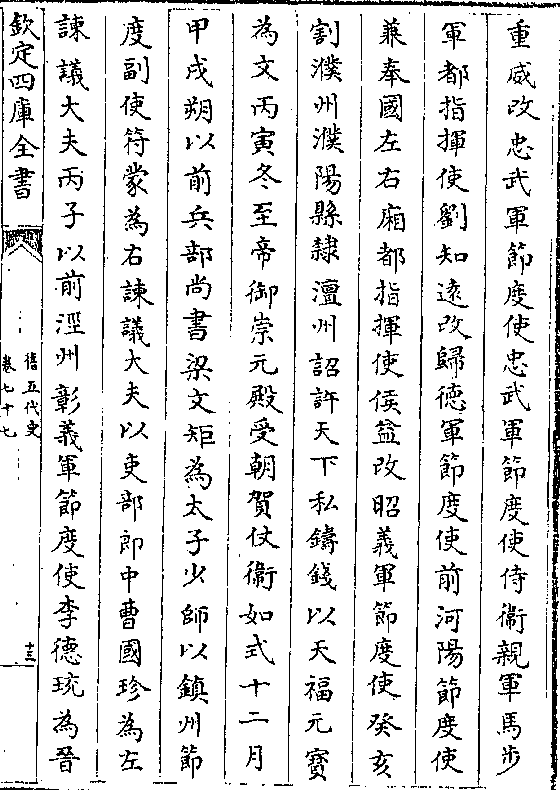 重威改忠武軍節度使忠武軍節度使侍衞親軍馬步
軍都指揮使劉知遠改歸德軍節度使前河陽節度使
兼奉國左右廂都指揮使侯益改昭義軍節度使癸亥
割濮州濮陽縣隸澶州詔許天下私鑄錢以天福元寳
為文丙寅冬至帝御崇元殿受朝賀仗衞如式十二月
甲戌朔以前兵部尚書梁文矩為太子少師以鎮州節
度副使符蒙為右諫議大夫以吏部郎中曹國珍為左
諫議大夫丙子以前涇州彰義軍節度使李德珫為晉
欽定四庫全書
舊五代史
卷七十七
十三